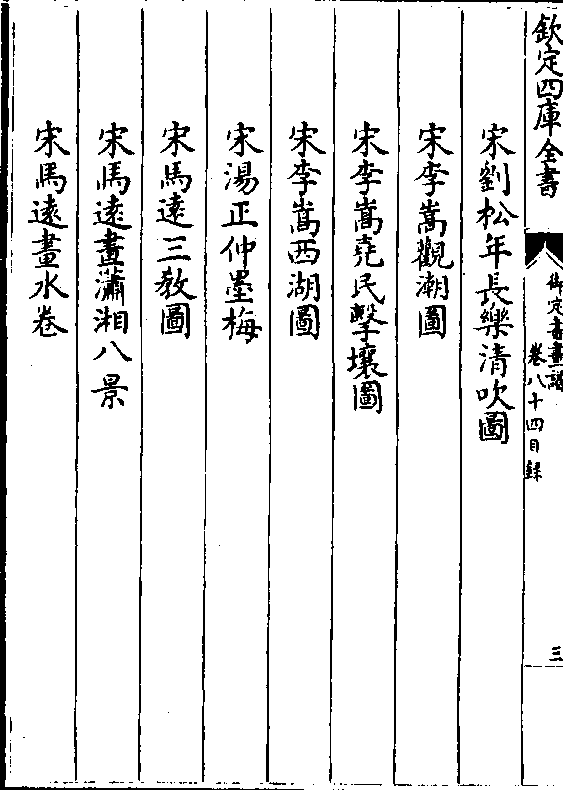 欽定四庫全書
御定書畫譜
卷八十四目録
三
宋劉松年長樂清吹圖
宋李嵩觀潮圖
宋李嵩堯民擊壤圖
宋李嵩西湖圖
宋湯正仲墨梅
宋馬遠三教圖
宋馬遠畫瀟湘八景
宋馬遠畫水卷